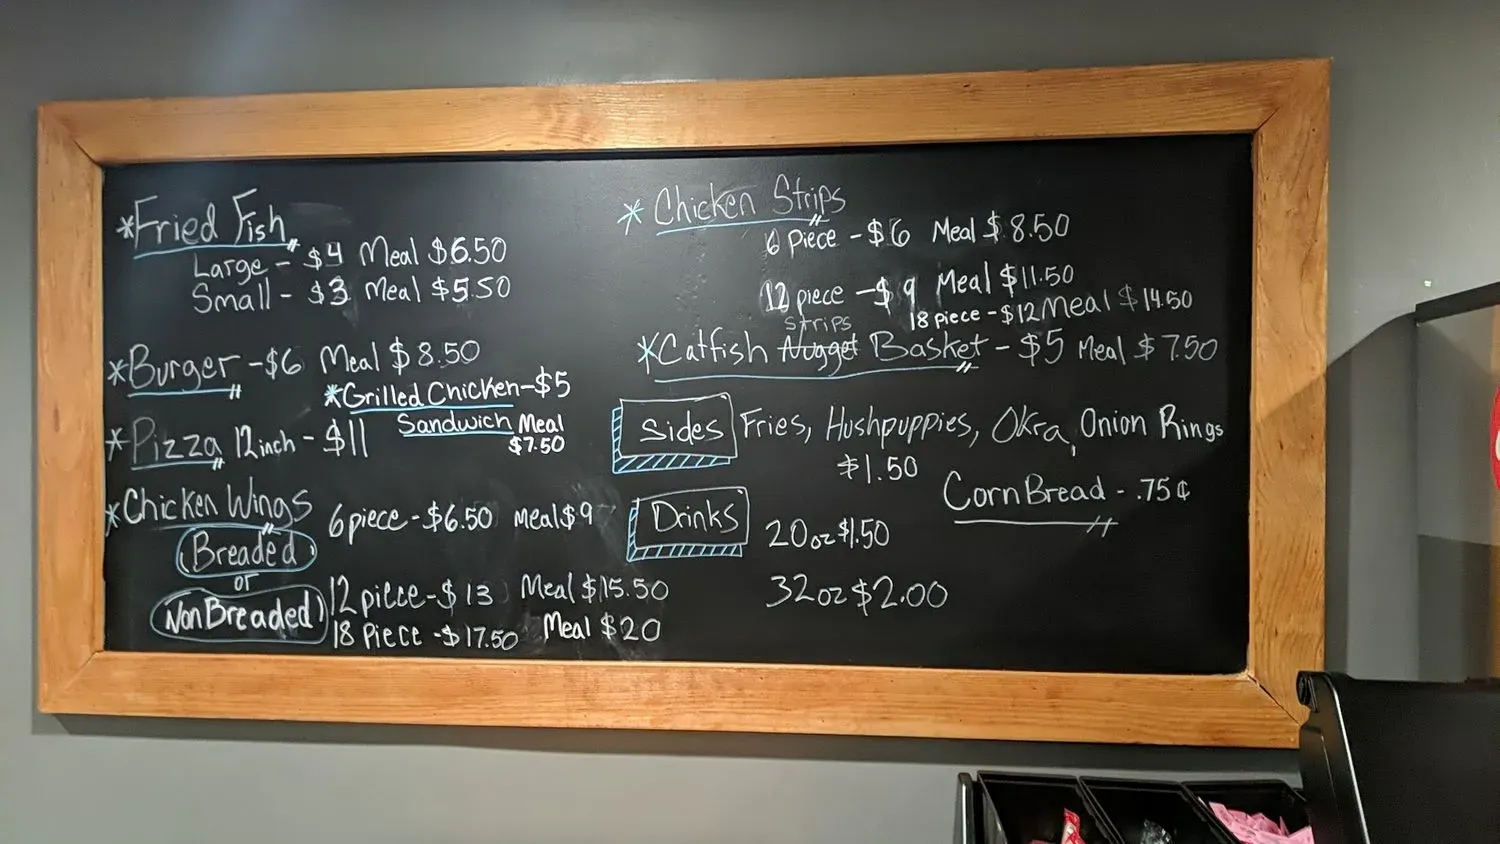 *Fried Fish
Large - $4 Meal $6.50
Small - $3 Meal $5.50
*Burger - $6 Meal $8.50
*Grilled Chicken - $5
Sandwich Meal
$7.50
*Pizza 12inch - $11
*Chicken Wings
Breaded
or
NonBreaded
6 piece - $6.50 Meal $9
12 piece - $13 Meal $15.50
18 Piece - $17.50 Meal $20
*Chicken Strips
6 Piece - $6 Meal $8.50
12 piece - $9 Meal $11.50
18 piece - $12 Meal $14.50
strips
*Catfish Nugget Basket - $5 Meal $7.50
Sides Fries, Hushpuppies, Okra, Onion Rings
$1.50
CornBread - .75¢
Drinks
20oz $1.50
32oz $2.00